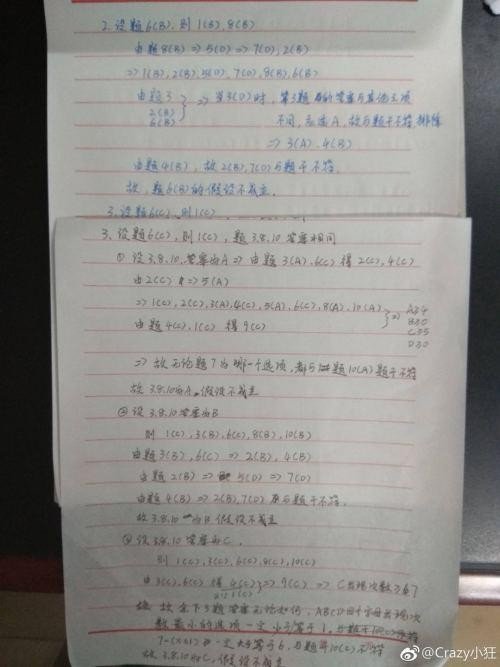 2. 设题6(B), 则1(B), 8(B)
由题8(B) => 5(D) => 7(D), 2(B)
=> 1(B), 2(B), 5(D), 7(D), 8(B), 6(B)
由题3
2(B)
6(B)
=> 当3(D)时, 第3题的答案与其他三项
不同, 应选A, 故与题干不符, 排除
=> 3(A), 4(B)
由题4(B), 故2(B), 7(D)与题干不符,
故, 题6(B)的假设不成立.
3. 设题6(C), 则1(C)
3. 设题6(C), 则1(C), 题3.8.10答案相同
① 设3.8.10.答案为A => 由题3(A), 6(C) 得2(C), 4(C)
由2(C) => 5(A)
=> 1(C), 2(C), 3(A), 4(C), 5(A), 6(C), 8(A), 10(A)
由题4(C), 1(C) 得9(C)
=> A≥4
B≥0
C≥5
D≥0
=> 故无论题7为哪一个选项, 都与题10(A)题干不符
故3.8.10为A, 假设不成立
② 设3.8.10答案为B
则1(C), 3(B), 6(C), 8(B), 10(B)
由题3(B), 6(C) => 2(B), 4(B)
由题2(B) => 5(D) => 7(D)
由题4(B) => 2(B), 7(D)与题干不符,
故3.8.10为B假设不成立
③ 设3.8.10答案为C,
则1(C), 3(C), 6(C), 8(C), 10(C)
由3(C), 6(C) 得4(C) => 9(C) => C出现次数≥6
1(C)
故余下3题答案无论如何, ABCD四个字母出现次
数最小的选项一定小于等于1,
一定大于等于6, 与题10(C)不符
故3.8.10为C, 假设不成立
@Crazy小狂